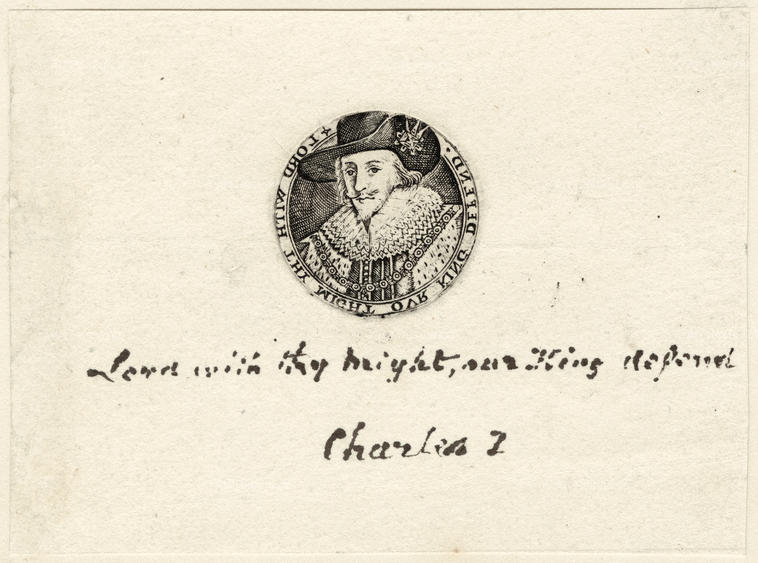 LORD WITH THY MIGHT OVR KING DEFEND.
Lord with thy might, our King defend
Charles I